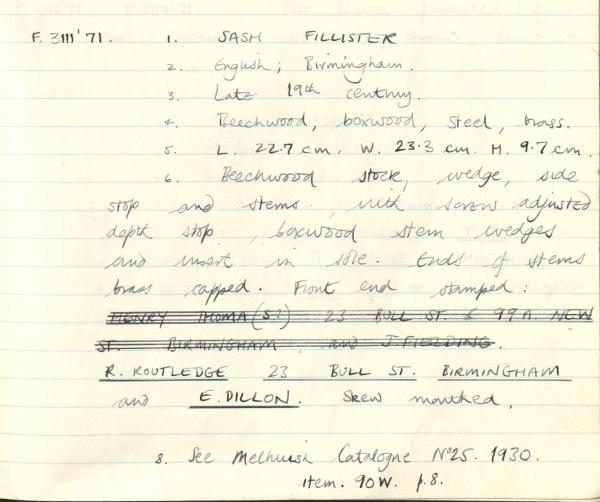 F. 3111'71. 1. SASH FILLISTER
2. English; Birmingham.
3. Late 19th century.
4. Beechwood, boxwood, steel, brass.
5. L. 22.7 cm. W. 23.3 cm. H. 9.7 cm.
6. Beechwood stock, wedge, side
stop and stems, with screw adjusted
depth stop, boxwood stem wedges
and insert in sole. Ends of stems
brass capped. Front end stamped:
HENRY THOMA(S?) 23 BULL ST. & 99A. NEW
ST. BIRMINGHAM, and J. FIELDING.
R. ROUTLEDGE 23 BULL ST. BIRMINGHAM
and E. DILLON. Skew mouthed.
8. See Melhuish Catalogue No 25. 1930.
item. 90W. p.8.